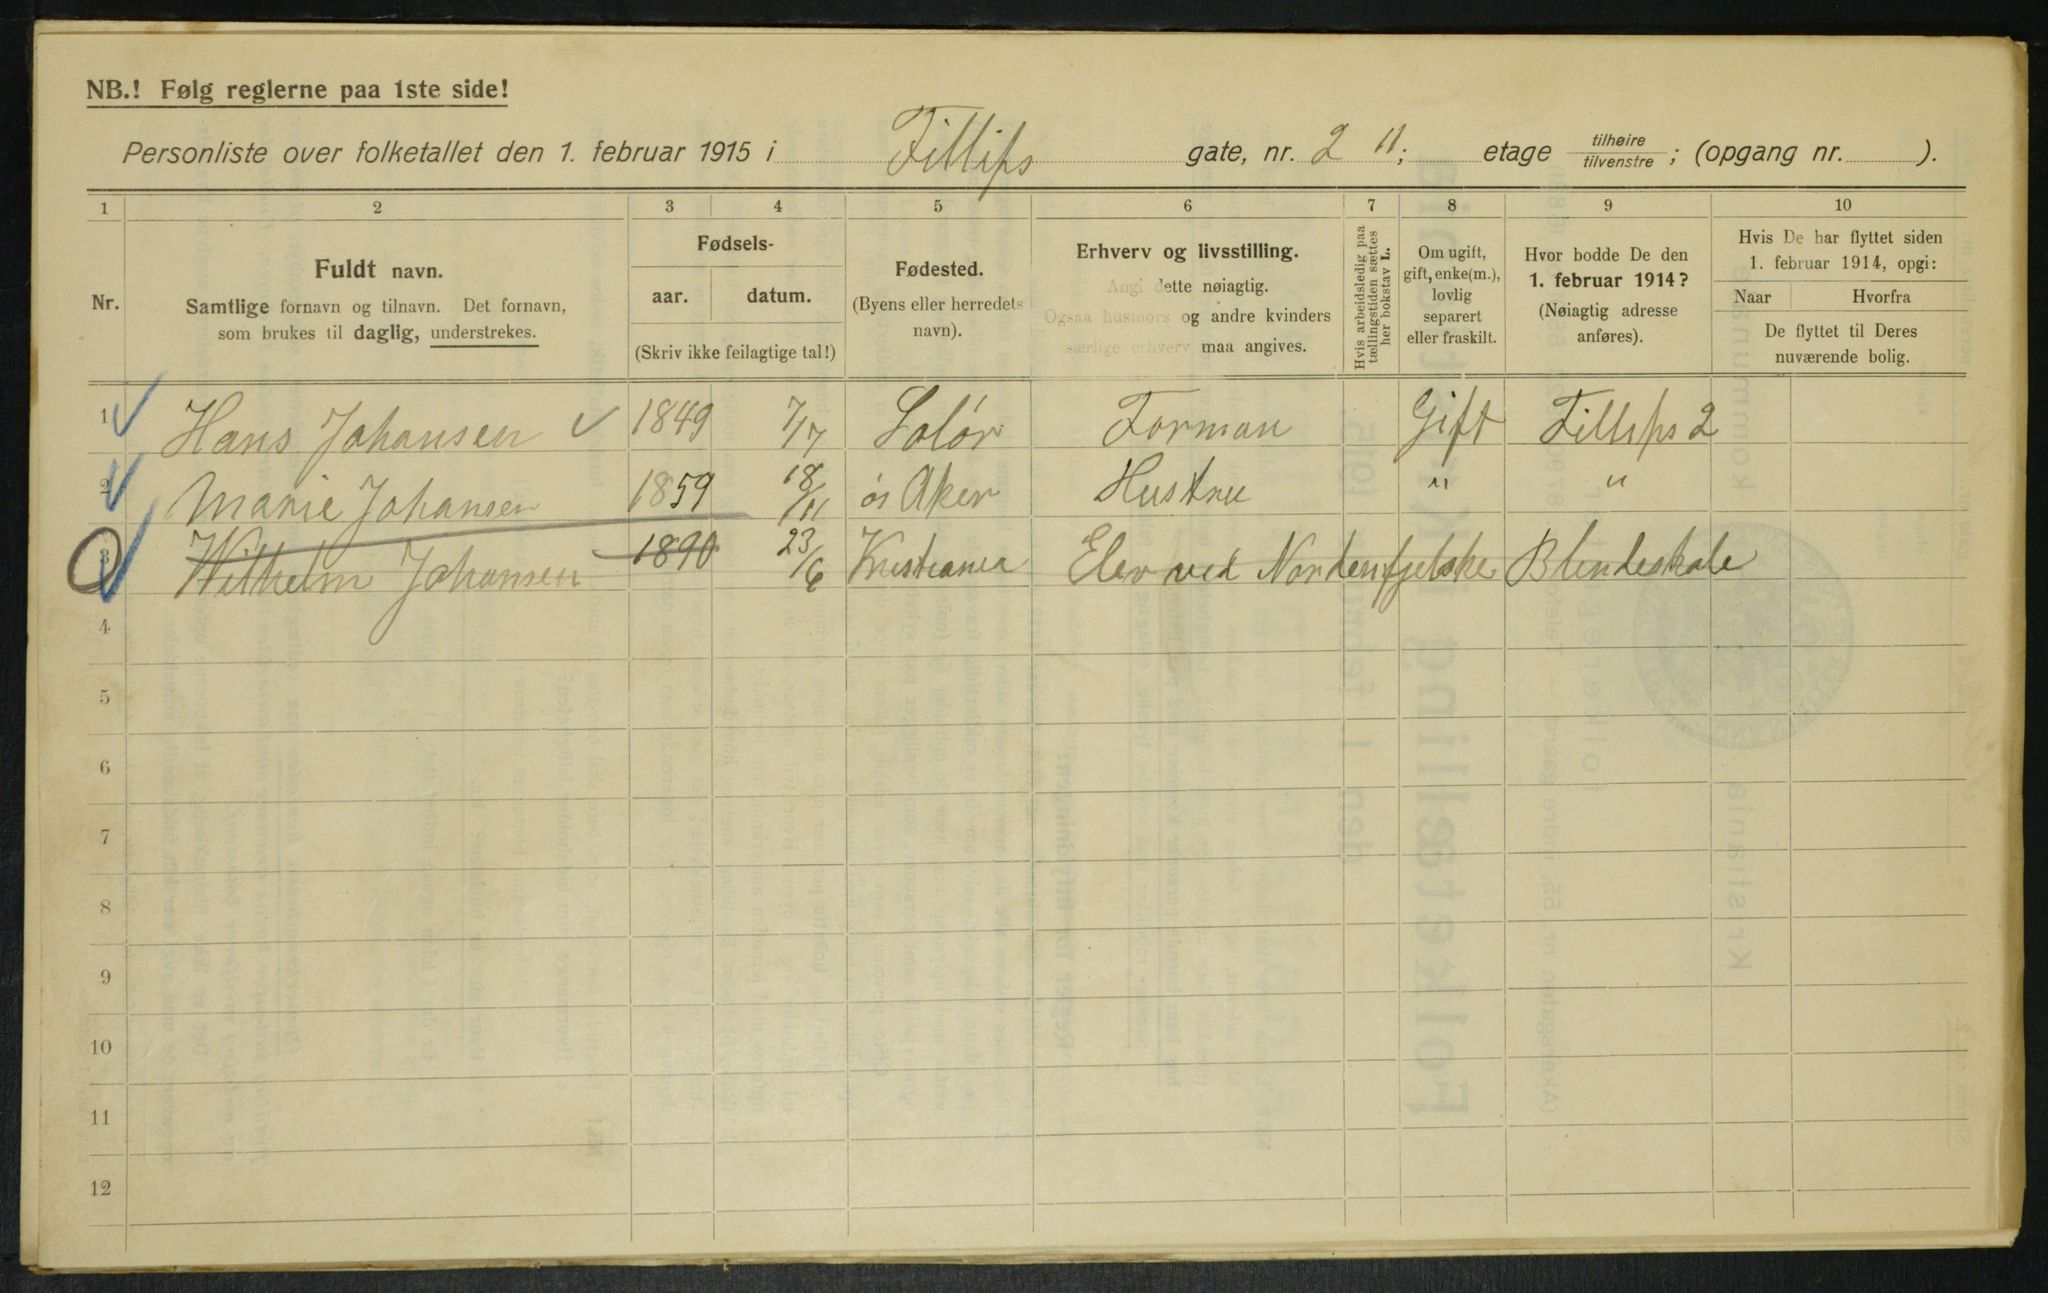 NB.! Følg reglerne paa 1ste side!
Personliste over folketallet den 1. februar 1915 i Fillips gate, nr. 2 II; etage tilhøire/tilvenstre; (opgang nr. ).
1 2 3 4 5 6 7 8 9 10
Nr.
Fuldt navn.
Samtlige fornavn og tilnavn. Det fornavn,
som brukes til daglig, understrekes.
Fødsels-
aar. datum.
(Skriv ikke feilagtige tal!)
Fødested.
(Byens eller herredets
navn).
Erhverv og livsstilling.
Angi dette nøiagtig.
Ogsaa husmors og andre kvinders
særlige erhverv maa angives.
Hvis arbeidsledig paa
tællingstiden sættes
her bokstav L.
Om ugift,
gift, enke(m.),
lovlig
separert
eller fraskilt.
Hvor bodde De den
1. februar 1914?
(Nøiagtig adresse
anføres).
Hvis De har flyttet siden
1. februar 1914, opgi:
Naar Hvorfra
De flyttet til Deres
nuværende bolig.
1 Hans Johansen 1849 7/7 Solør Forman Gift Fillips 2
2 Marie Johansen 1859 18/11 Aker Hustru " "
3 Wilhelm Johansen 1890 23/6 Kristiania Elev ved Nordenfjelske Blindeskole
4
5
6
7
8
9
10
11
12